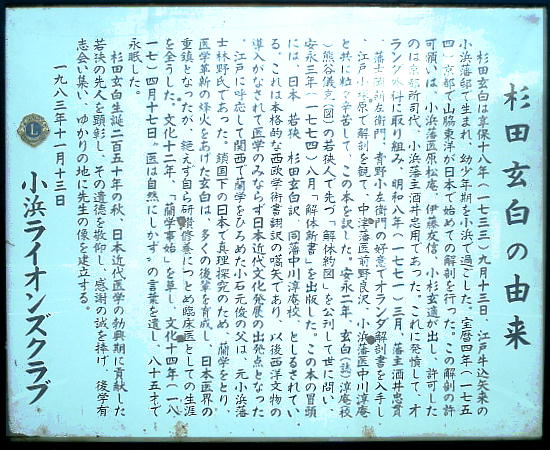 杉田玄白の由来
杉田玄白は享保十八年(一七三三)九月十三日、江戸牛込矢来の
小浜藩邸で生まれ、幼少年期を小浜で過ごした。宝暦四年(一七五
四)京都で山脇東洋が日本で始めての解剖を行った。この解剖の許
可願いは、小浜藩医原松庵、伊藤友信、小杉玄適が出し、許可した
のは京都所司代、小浜藩主酒井忠用であった。これに発憤して、オ
ランダ外科に取り組み、明和八年(一七七一)三月、藩主酒井忠貫
、藩士岡新左衛門、青野小左衛門の好意でオランダ解剖書を入手し
、江戸小塚原で解剖を観て、中津藩医前野良沢、小浜藩医中川淳庵
と共に粒々辛苦して、この本を訳した。安永二年、玄白(誌)淳庵校
)熊谷儀克(図)の若狭人で先づ「解体約図」を公刊して世に問い、
安永三年(一七七四)八月「解体新書」を出版した。この本の冒頭
には、日本 若狭 杉田玄白訳、同藩中川淳庵校、としるされてい
る。これは本格的な西欧学術書翻訳の嚆矢であり、以後西洋文物の
導入がなされて医学のみならず日本近代文化発展の出発点となった
。江戸に呼応して関西で蘭学をひろめた小石元俊の父は、元小浜藩
士林野氏であった。鎖国下の日本で真理探究のため、蘭学をとり
医学革新の烽火をあげた玄白は、多くの後輩を育成し、日本医界の
重鎮となったが、絶えず自ら研鑽修養につとめ臨床医としての生涯
を全うした。文化十二年、「蘭学事始」を草し、文化十四年(一八
一七)四月十七日“医は自然にしかず”の言葉を遺し、八十五才で
永眠した。
杉田玄白生誕二百五十年の秋、日本近代医学の勃興期に貢献した
若狭の先人を顕彰し、その遺徳を敬仰し、感謝の誠を捧げ、後学有
志会い集い、ゆかりの地に先生の像を建立する。
一九八三年十一月十三日
L
小浜ライオンズクラブ